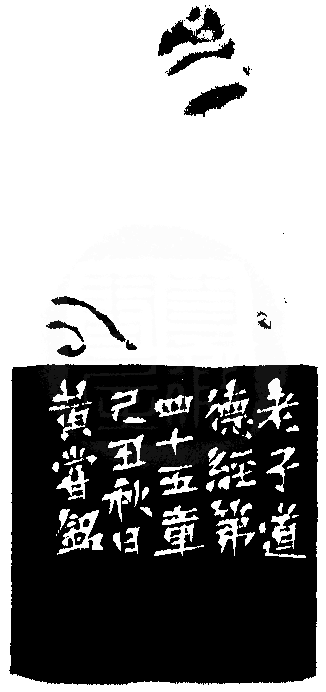 老子道
德經第
四十五章
己丑秋日
黃嘗銘